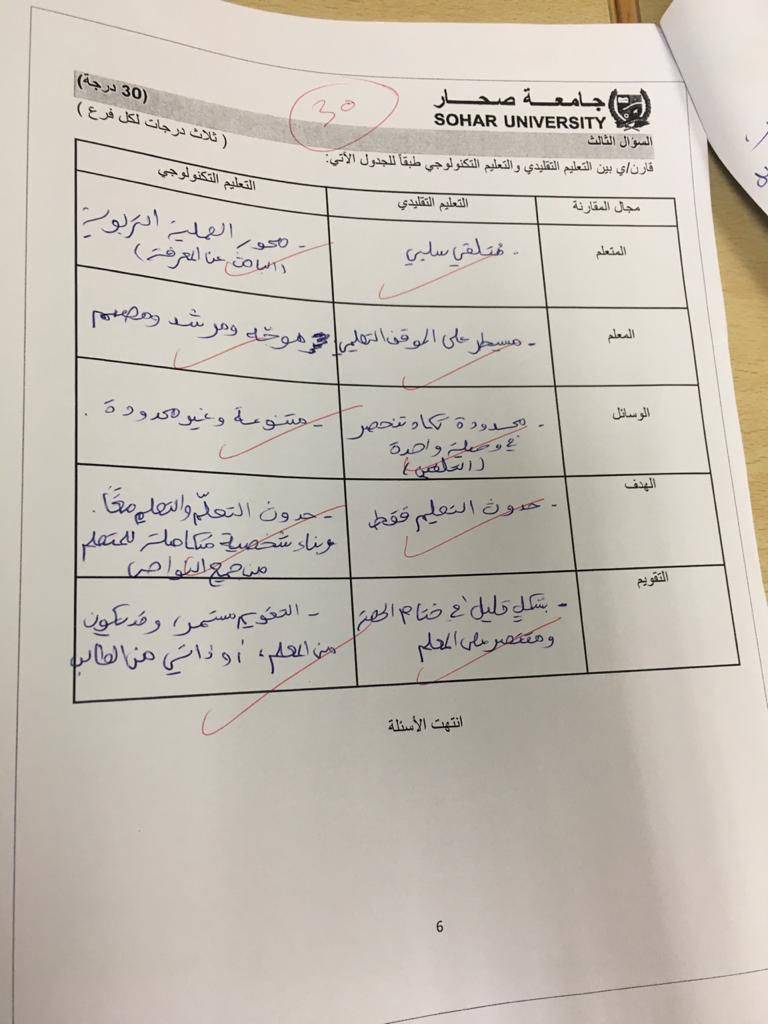 جامعة صحار
SOHAR UNIVERSITY
(30 درجة)
30
السؤال الثالث
( ثلاث درجات لكل فرع )
قارن/ي بين التعليم التقليدي والتعليم التكنولوجي طبقاً للجدول الآتي:
مجال المقارنة
التعليم التقليدي
التعليم التكنولوجي
المتعلم
- مُتلقي سلبي
- محور العملية التربوية
(الباحث عن المعرفة)
المعلم
- مسيطر على الموقف التعليمي
موجّه ومرشد ومصمم
الوسائل
- محدودة تكاد تنحصر
في وسيلة واحدة
(التلقين)
- متنوعة وغير محدودة .
الهدف
- حدوث التعليم فقط
- حدوث التعلّم والتعليم معًا .
وبناء شخصية متكاملة للمتعلم
من جميع النواحي
التقويم
- بشكلٍ قليل في ختام الحصة
ومقتصر على المعلم
- التقويم مستمر، وقد يكون
من المعلم، أو ذاتي من الطالب
انتهت الأسئلة
6